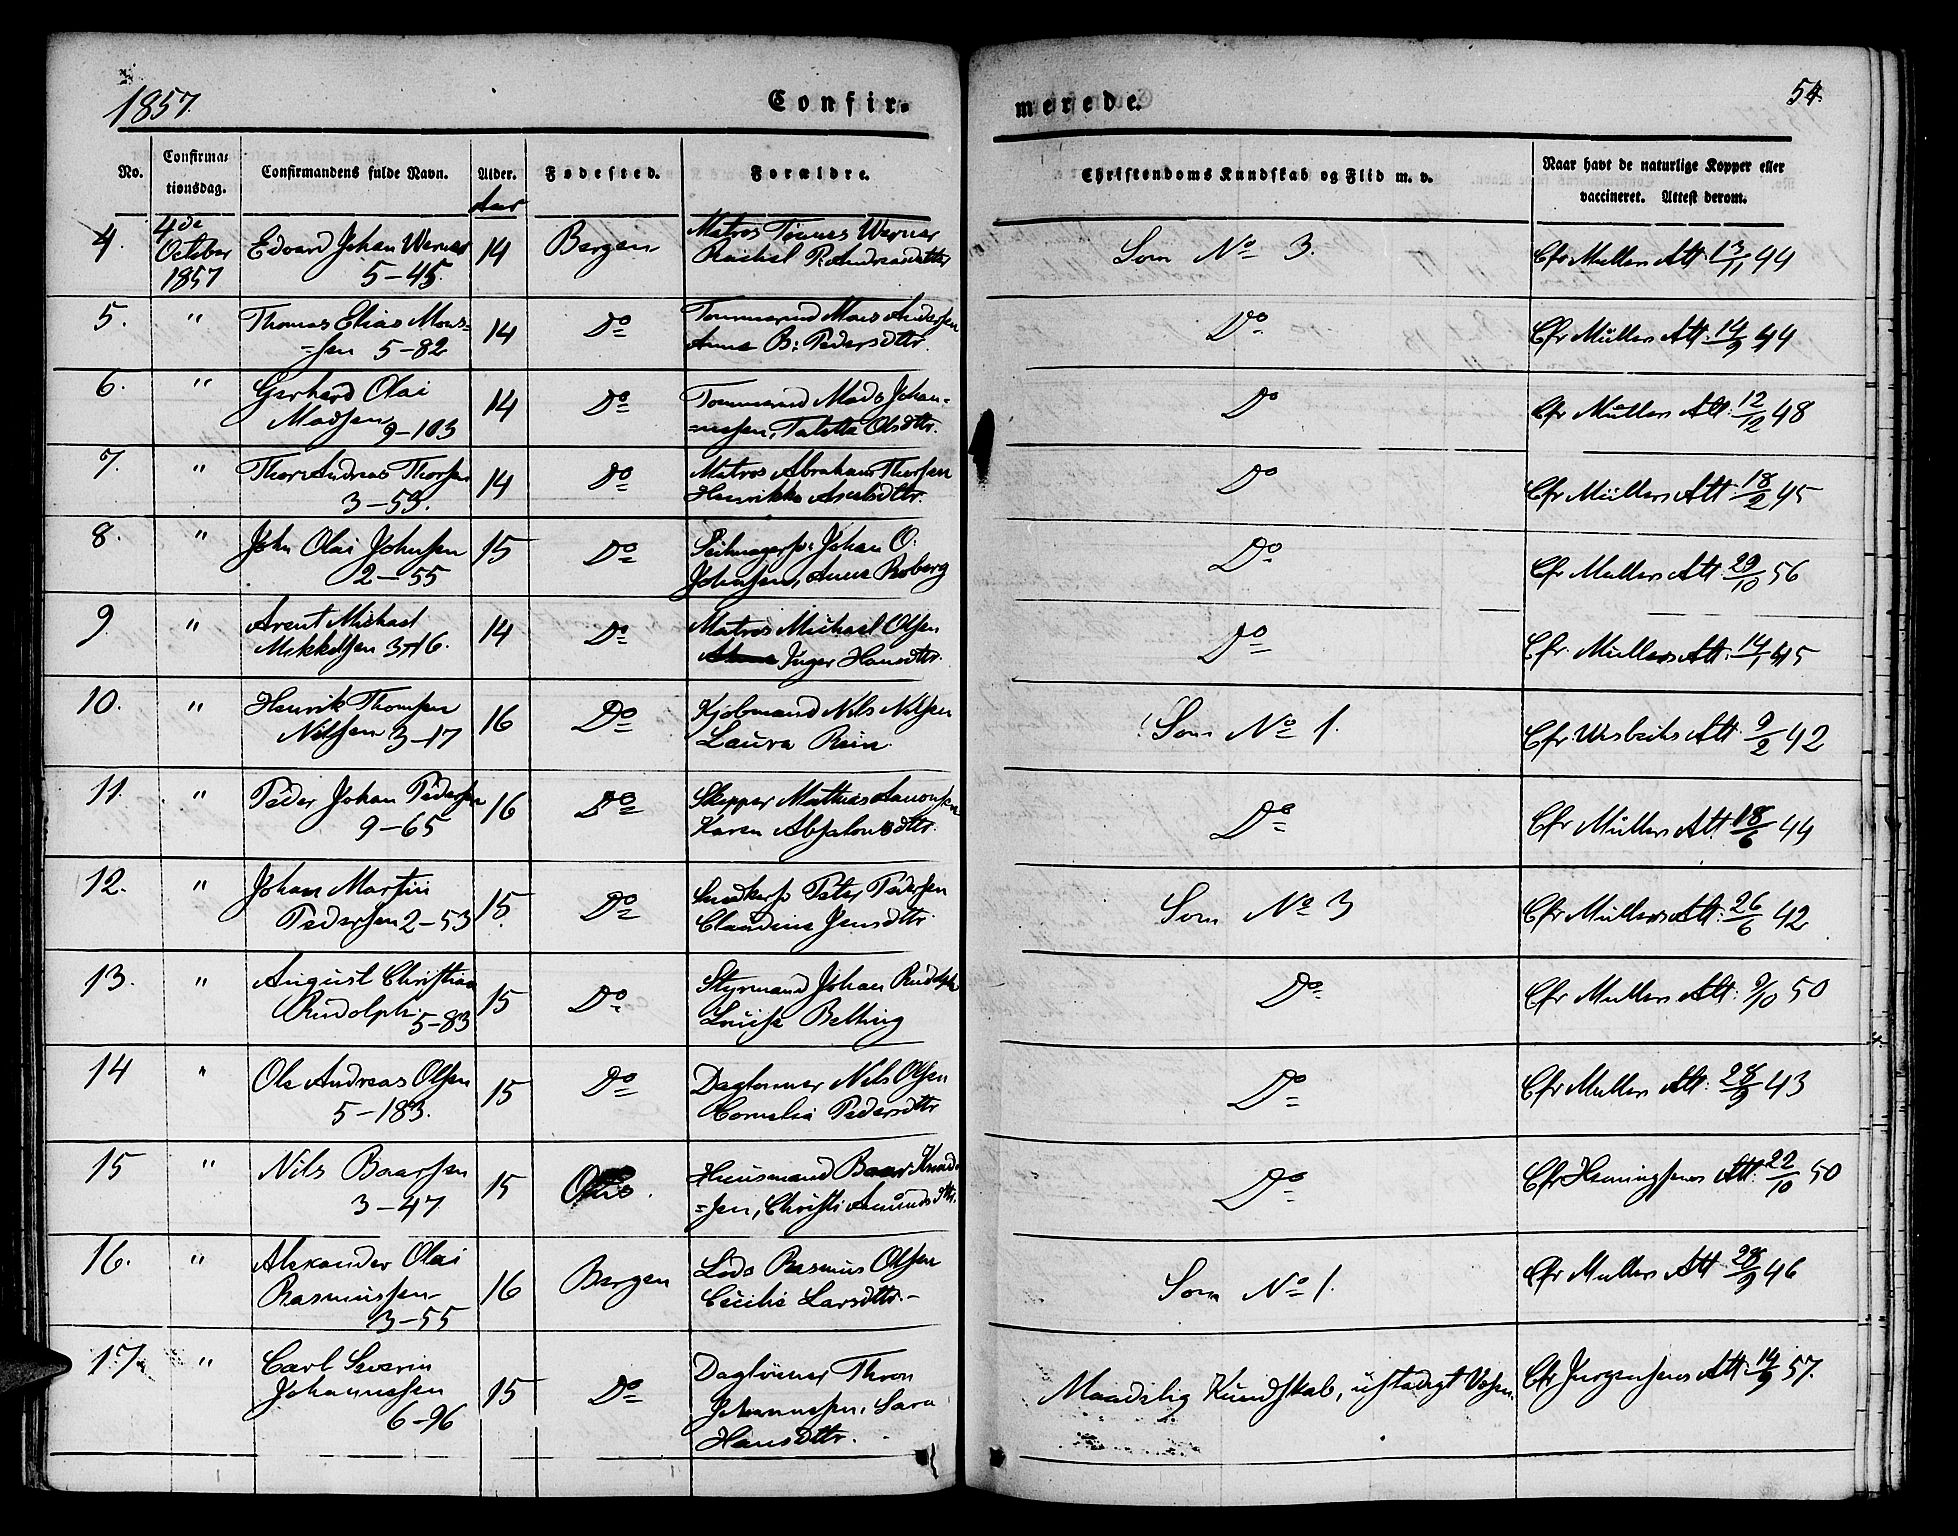 1857.
Confir-
merede.
54.
No.
Confirma-
tionsdag.
Confirmandens fulde Navn.
Alder.
Aar
Fødested.
Forældre.
Christendoms Kundskab og Flid m. v.
Naar havt de naturlige Kopper eller
vaccineret. Attest derom.
4. 4de October 1857 Edvard Johan Werner 14 Bergen Matros Tönnes Werner Som No 3. Cfr Mullers Att 13/11 44
5-45. Rachel P. Andreasdttr
5. " Thomas Elias Mons- 14 Do Tommermd Mons Andersen Do Cfr Müllers Att: 14/9 44
=sen 5-82 Anna B: Pedersdttr.
6. " Gerhard Olai 14 Do Tommermd Mads Johan- Do Cfr Müllers Att: 12/12 48
Madsen 9-103 =nessen, Taletta Olsdttr.
7. " Thor Andreas Thorsen 14 Do Matros Abraham Thorsen Do Cfr Müllers Att 18/2 45
3-59. Henrikke
8. " John Olai Johnsen 15 Do Johan O: Do Cfr Mullers Att 29/10 56
2-55 Johnsen, Anna Roberg
9. " Arent Michael 14 Do Matros Michael Olsen Do Cfr. Müllers Att: 14/1 45
Mikkelsen 3-16. Inger Hansdttr.
10. " Henrik Thomsen 16 Do Kjøbmand Nils Nilsen Som No 1. Cfr. Wisbechs Att 9/2 42
Nilsen 3-17 Laura Rein
11. " Peder Johan Pedersen 16 Do Skipper Mathias Aanonsen Do Cfr Müllers Att 18/6 44
9-65 Karen Absalonsdttr.
12. " Johan Martin 15. Do Peter Pedersen Som No 3 Cfr Müllers Att: 26/6 42
Pedersen 2-53 Claudine Jensdttr.
13. " August Christian 15 Do Styrmand Johan Rudolph Do Cfr Mullers Att: 9/10 50
Rudolph. 5-83 Louise Belling
14 " Ole Andreas Olsen 15 Do Daglonner Nils Olsen Do Cfr Mullers Att: 28/9 43
5-183. Cornelia Pedersdttr
15 " Nils Baarsen 15 Huusmand Baar Knud- Do Cfr Heningsens Att. 22/10 50
3-47 =sen, Christi Amundsdttr.
16. " Alexander Olai 16 Bergen Lods Rasmus Olsen Som No 1. Cfr Mullers Att 28/9 46
Rasmussen Cecilie Larsdttr.
3-55
17. " Carl Severin 15 Do Daglönner Thron Maadelig Kundskab, ustadigt Væsen Cfr Jurgensens Att: 14/9 57.
Johannessen Johannessen, Sara
6-96 Hansdttr.